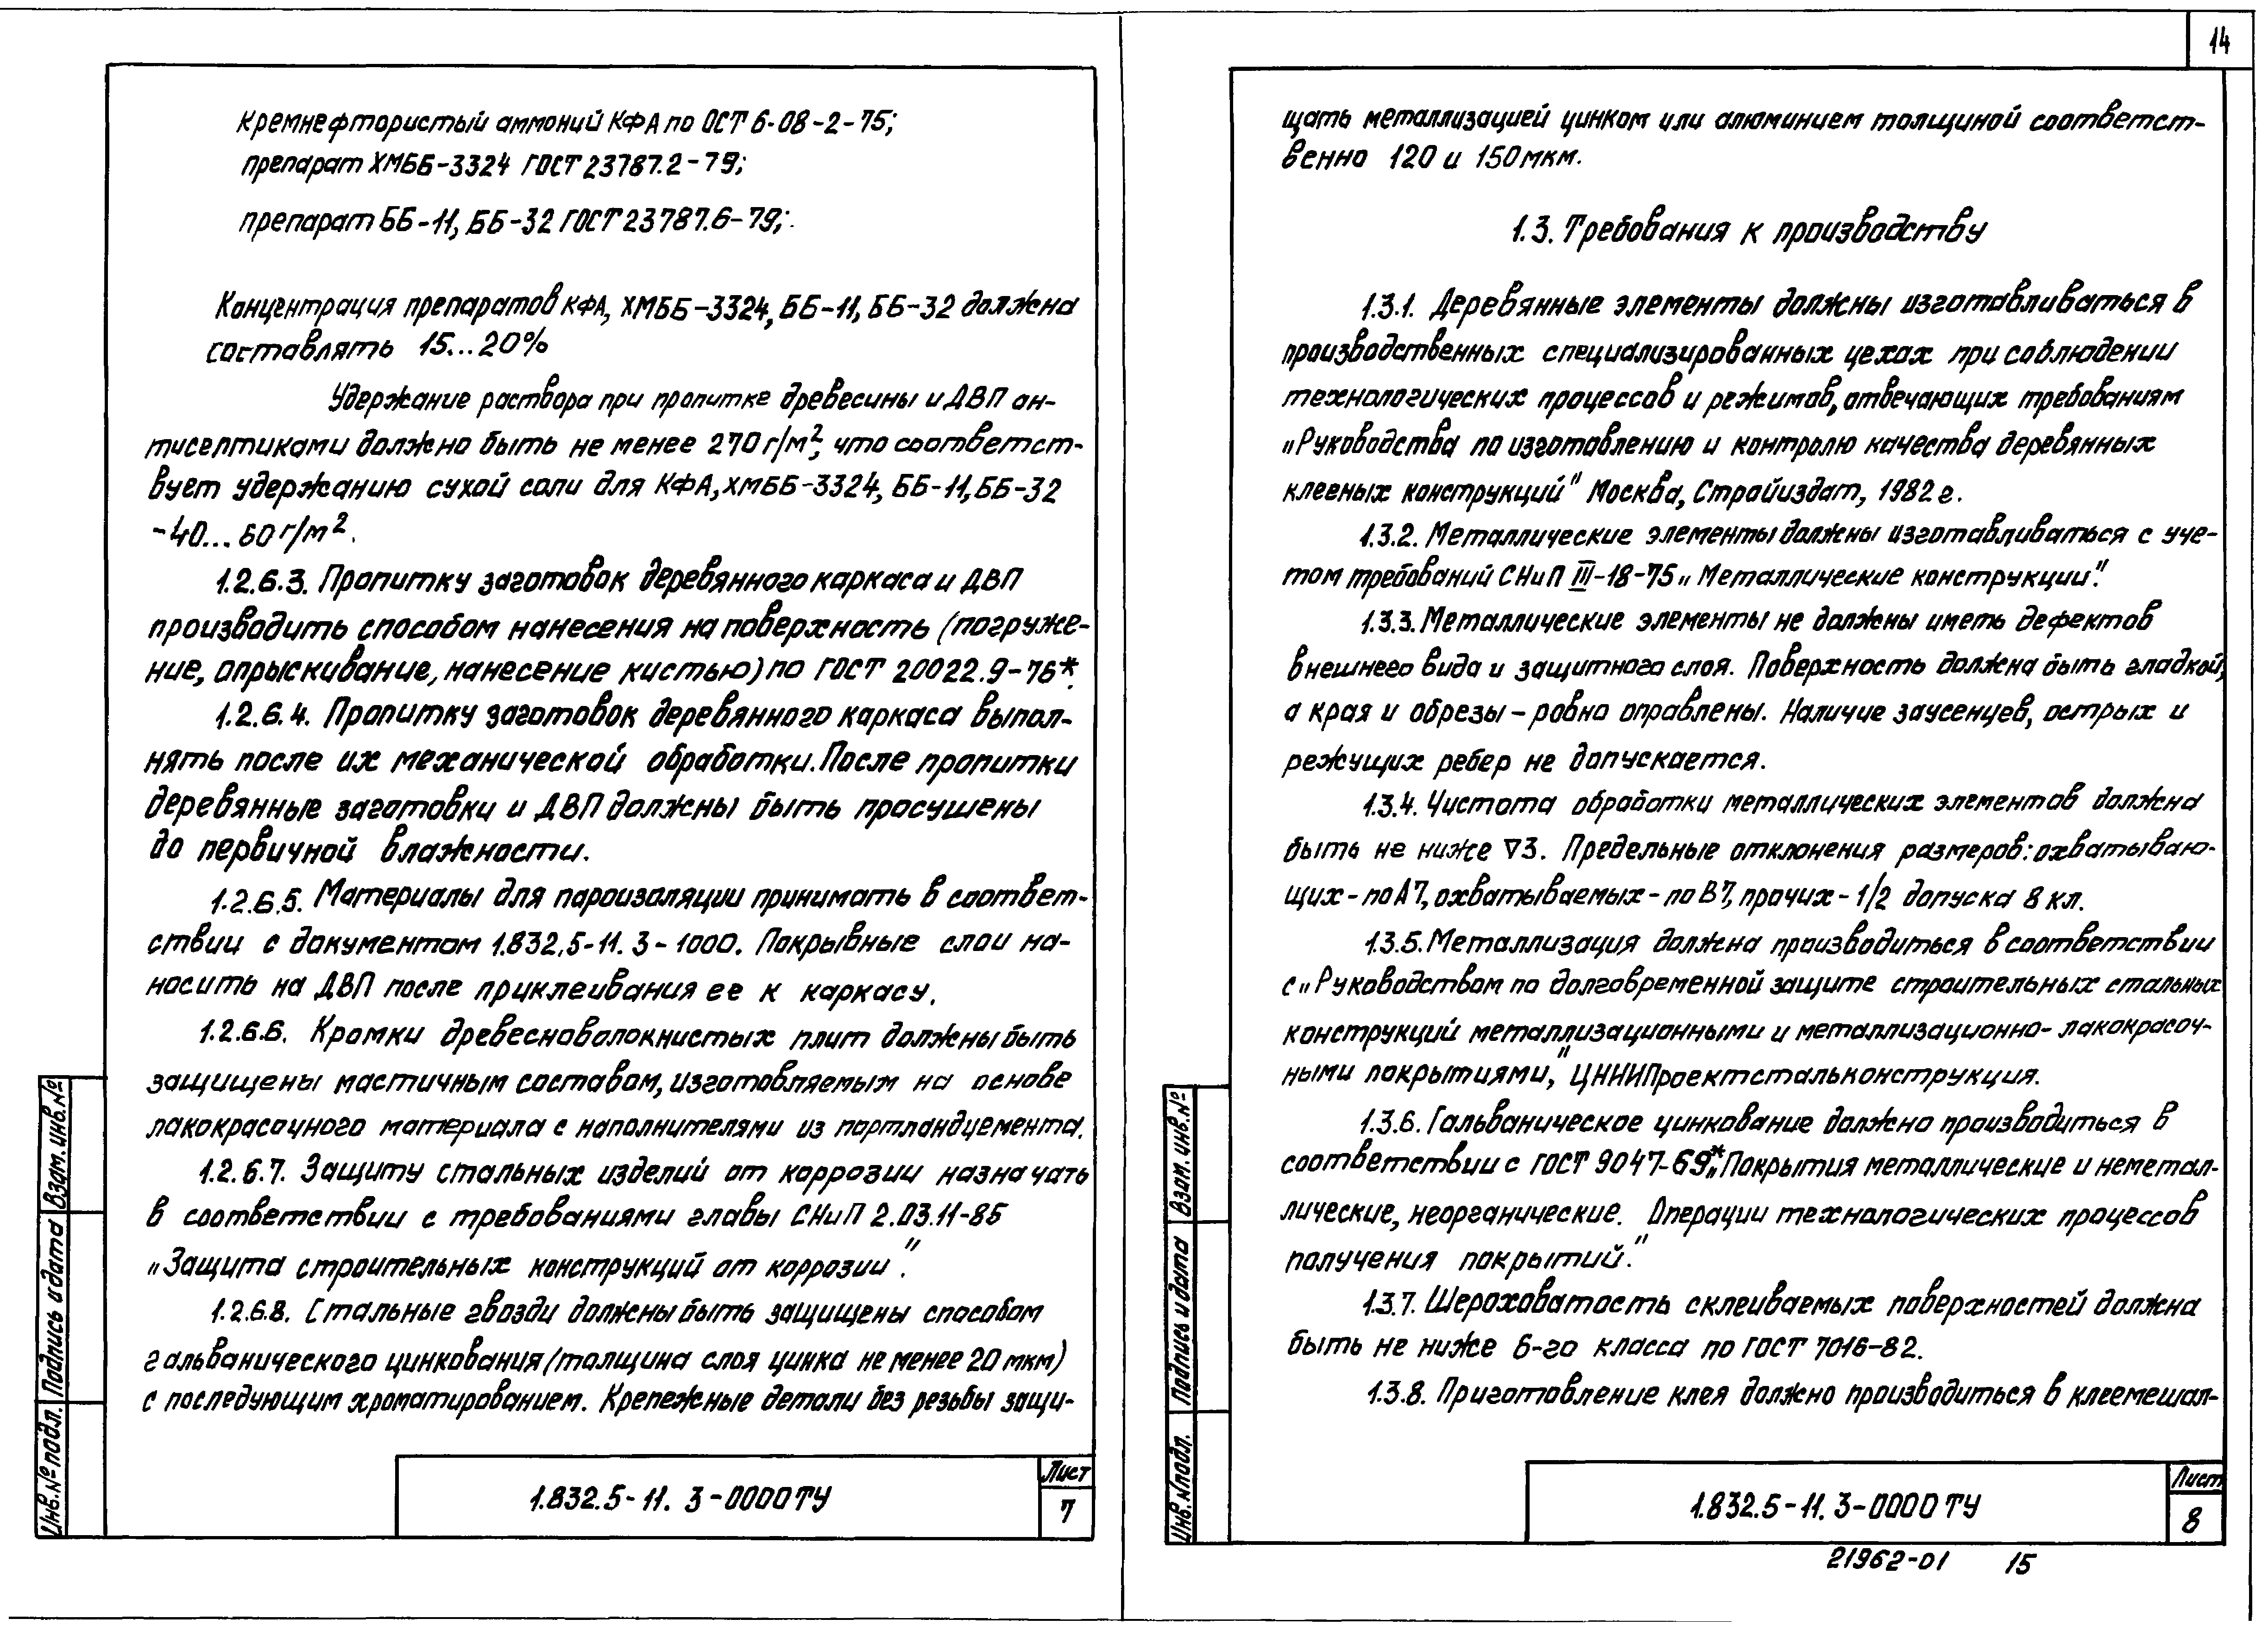 Кремнефтористый аммоний КФА по ОСТ 6-08-2-75;
препарат ХМББ-3324 ГОСТ 23787.2-79;
препарат ББ-11, ББ-32 ГОСТ 23787.6-79;
Концентрация препаратов КФА, ХМББ-3324, ББ-11, ББ-32 должна
составлять 15...20%
Удержание раствора при пропитке древесины и ДВП ан-
тисептиками должно быть не менее 270 г/м², что соответст-
вует удержанию сухой соли для КФА, ХМББ-3324, ББ-11, ББ-32
-40...60 г/м².
1.2.6.3. Пропитку заготовок деревянного каркаса и ДВП
производить способом нанесения на поверхность (погруже-
ние, опрыскивание, нанесение кистью) по ГОСТ 20022.9-76*.
1.2.6.4. Пропитку заготовок деревянного каркаса выпол-
нять после их механической обработки. После пропитки
деревянные заготовки и ДВП должны быть просушены
до первичной влажности.
1.2.6.5. Материалы для пароизоляции принимать в соответ-
ствии с документом 1.832.5-11.3-1000. Покрывные слои на-
носить на ДВП после приклеивания ее к каркасу.
1.2.6.6. Кромки древесноволокнистых плит должны быть
защищены мастичным составом, изготовляемым на основе
лакокрасочного материала с наполнителями из портландцемента.
1.2.6.7. Защиту стальных изделий от коррозии назначать
в соответствии с требованиями главы СНиП 2.03.11-85
„Защита строительных конструкций от коррозии".
1.2.6.8. Стальные гвозди должны быть защищены способом
гальванического цинкования (толщина слоя цинка не менее 20 мкм)
с последующим хроматированием. Крепежные детали без резьбы защи-
Взам. инв. №
Подпись и дата
Инв. № подл.
1.832.5-11. 3-0000 ТУ
Лист
7
14
щать металлизацией цинком или алюминием толщиной соответст-
венно 120 и 150 мкм.
1.3. Требования к производству
1.3.1. Деревянные элементы должны изготавливаться в
производственных специализированных цехах при соблюдении
технологических процессов и режимов, отвечающих требованиям
„Руководства по изготовлению и контролю качества деревянных
клееных конструкций" Москва, Стройиздат, 1982 г.
1.3.2. Металлические элементы должны изготавливаться с уче-
том требований СНиП III-18-75 „Металлические конструкции".
1.3.3. Металлические элементы не должны иметь дефектов
внешнего вида и защитного слоя. Поверхность должна быть гладкой,
а края и обрезы - ровно оправлены. Наличие заусенцев, острых и
режущих ребер не допускается.
1.3.4. Чистота обработки металлических элементов должна
быть не ниже ∇3. Предельные отклонения размеров: охватываю-
щих - по А7, охватываемых - по В7, прочих - 1/2 допуска 8 кл.
1.3.5. Металлизация должна производиться в соответствии
с „Руководством по долговременной защите строительных стальных
конструкций металлизационными и металлизационно-лакокрасоч-
ными покрытиями", ЦНИИПроектстальконструкция.
1.3.6. Гальваническое цинкование должно производиться в
соответствии с ГОСТ 9047-69* „Покрытия металлические и неметал-
лические, неорганические. Операции технологических процессов
получения покрытий."
1.3.7. Шероховатость склеиваемых поверхностей должна
быть не ниже 6-го класса по ГОСТ 7016-82.
1.3.8. Приготовление клея должно производиться в клеемешал-
Взам. инв. №
Подпись и дата
Инв. № подл.
1.832.5-11. 3-0000 ТУ
Лист
8
21962-01 15